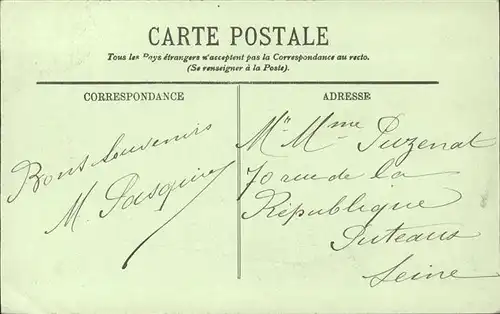 CARTE POSTALE
Tous les Pays étrangers n'acceptent pas la Correspondance au recto.
(Se renseigner à la Poste).
CORRESPONDANCE
Bons souvenirs
M. Pasquier
ADRESSE
Mr Mme Puzenat
70 rue de la
République
Puteaux
Seine